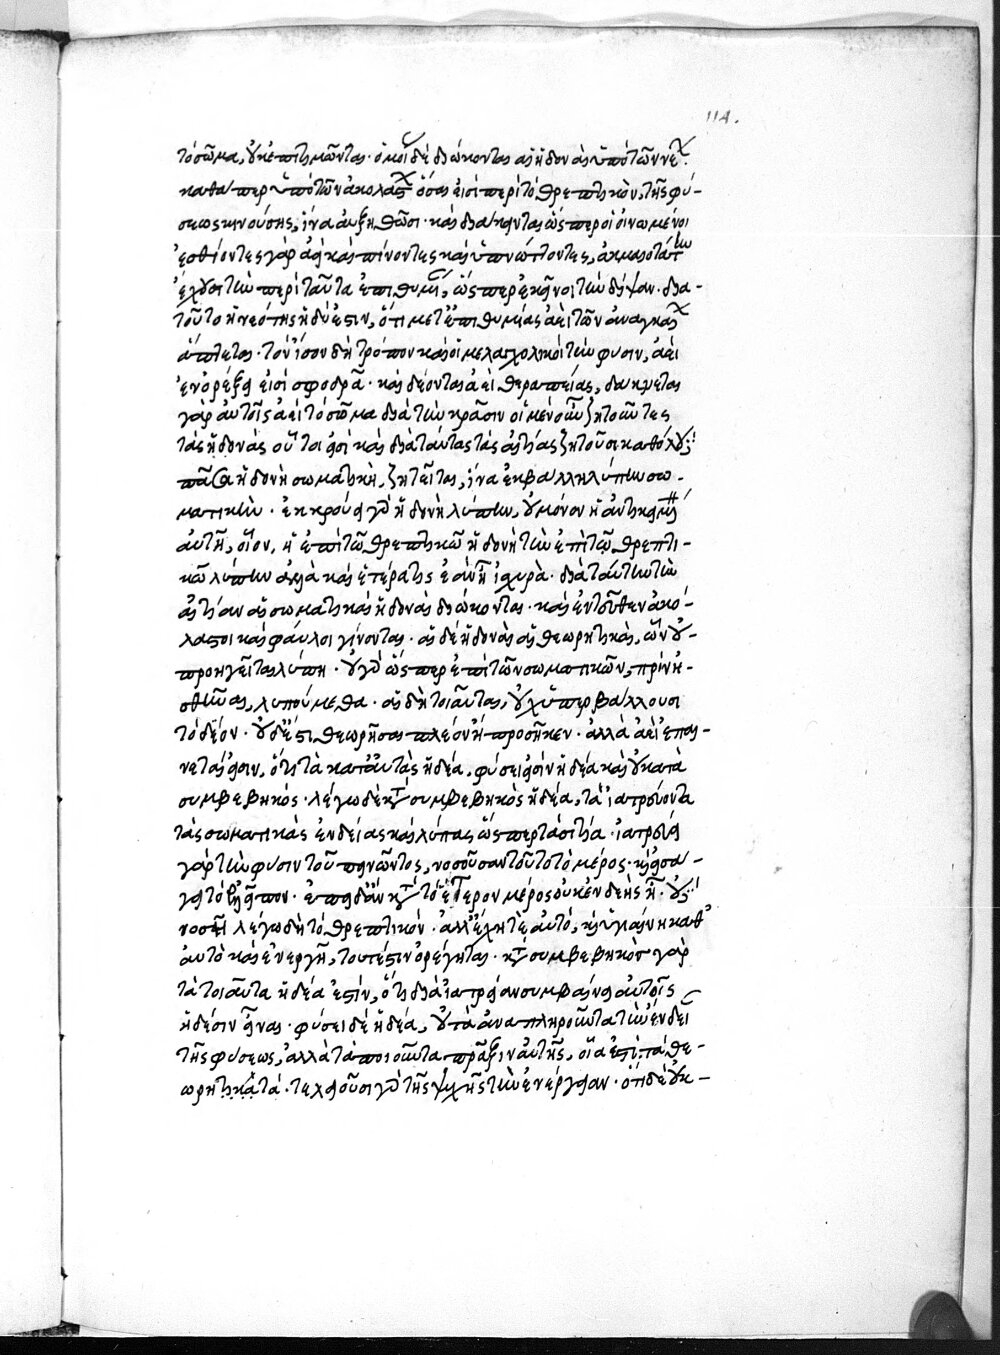 114.
τὸ σῶμα, οὐκ ἐπιτιμῶνται· ὅμοι δὲ διώκονται αἱ ἡδοναὶ ὑπὸ τῶν νέ
καθάπερ ὑπὸ τῶν ἀκολάς ὅσαι εἰσὶ περὶ τὸ θρεπτικὸν, τῆς φύ-
σεως κινούσης, ἵνα αὐξηθῶσι· καὶ διάκηνται ὥσπερ οἱ οἰνωμένοι
ἐσθίοντες γὰρ ἀεὶ καὶ πίνοντες καὶ ὑπνώττοντες, ἀκμαιοτάτην
ἔχουσι τὴν περὶ ταῦτα ἐπιθυμί, ὥσπερ ἐκεῖνοι τὴν δίψαν· δια-
τοῦτο ἡ νεότης ἡδύ ἐστιν, ὅτι μετ' ἐπιθυμίας ἀεὶ τῶν ἀναγκαί
ἅπτεται· τὸν ἴσον δὴ τρόπον καὶ οἱ μελαγχολικοὶ τὴν φύσιν, ἀεὶ
ἐν ὀρέξει εἰσὶ σφοδρᾷ· καὶ δέονται ἀεὶ θεραπείας, δάκνεται
γὰρ αὐτοῖς ἀεὶ τὸ σῶμα διὰ τὴν κρᾶσιν οἱ μὲν οὖν ζητοῦντες
τὰς ἡδονὰς οὗτοί εἰσι καὶ διὰ ταύτας τὰς αἰτίας ζητοῦσι καθόλου
πᾶσα ἡδονὴ σωματικὴ, ζητεῖται, ἵνα ἐκβάλλῃ λύπην σω-
ματικὴν· ἐκκρούει γὰρ ἡδονὴ λύπην, οὐ μόνον ἡ ἀντικειμένη
αὐτῇ, οἷον, ἡ ἐπὶ τῷ θρεπτικῷ ἡδονὴ τὴν ἐπὶ τῷ θρεπτι-
κῷ λύπην ἀλλὰ καὶ ἑτέρα τις ἐὰν ᾖ ἰσχυρὰ· διὰ ταύτην τὴν
αἰτίαν αἱ σωματικαὶ ἡδοναὶ διώκονται· καὶ ἐντεῦθεν ἀκό-
λαστοι καὶ φαῦλοι γίνονται· αἱ δὲ ἡδοναὶ αἱ θεωρητικαὶ, ὧν οὐ-
προηγεῖται λύπη· οὐ γὰρ ὥσπερ ἐπὶ τῶν σωματικῶν, πρὶν ἡ-
σθῆναι, λυπούμεθα· αἱ δὴ τοιαῦται, οὐχ ὑπερβάλλουσι
τὸ δέον· οὐδέ ἐστι θεωρῆσαι πλέον ἢ προσῆκεν· ἀλλὰ ἀεὶ ἐπαι-
νεταί εἰσιν, ὅτι τὰ κατ' αὐτὰς ἡδέα, φύσει εἰσὶν ἡδέα καὶ οὐ κατὰ
συμβεβηκός· λέγω δὲ κατὰ συμβεβηκὸς ἡδέα, τὰ ἰατρεύοντα
τὰς σωματικὰς ἐνδείας καὶ λύπας ὥσπερ τὰ σιτία· ἰατρεύει
γὰρ τὴν φύσιν τοῦ πεινῶντος, νοσοῦσαν τοῦτο τὸ μέρος· καὶ εἰσά-
γει τὸ λεῖπον· ἐπειδὰν κατὰ τὸ ἕτερον μέρος οὐκ ἐνδεὴς ᾖ· οὐ
νοσεῖ λέγω δὴ τὸ θρεπτικόν· ἀλλ' ἕλκῃ τε αὐτὸ, καὶ ὑγιαίνῃ καθ'
αὐτὸ καὶ ἐνεργῇ, τουτέστιν ὀρέγηται· κατὰ συμβεβηκὸς γὰρ
τὰ τοιαῦτα ἡδέα ἐστὶν, ὅτι διὰ ἰατρείαν συμβαίνει αὐτοῖς
ἡδέσιν εἶναι· φύσει δὲ ἡδέα, οὐ τὰ ἀναπληροῦντα τὴν ἔνδει
τῆς φύσεως, ἀλλὰ τὰ ποιοῦντα πρᾶξιν αὐτῆς, οἷά ἐστι τὰ θε-
ωρητικὰ τά· τελειοῦσι γὰρ τῆς ψυχῆς τὴν ἐνέργειαν· ὅτι δὲ οὐκ-